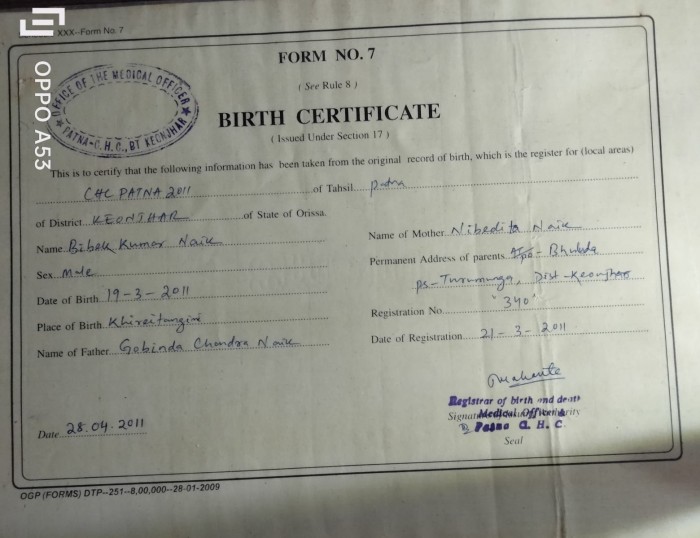 XXX--Form No. 7
OPPO A53
OFFICE OF THE MEDICAL OFFICER
PATNA-C.H.C., BT KEONJHAR
FORM NO. 7
( See Rule 8 )
BIRTH CERTIFICATE
( Issued Under Section 17 )
This is to certify that the following information has been taken from the original record of birth, which is the register for (local areas)
CHC PATNA 2011 of Tahsil Patna
of District KEONJHAR of State of Orissa.
Name Bibek Kumar Naik
Sex Male
Date of Birth 19-3-2011
Place of Birth Khireitangiri
Name of Father Gobinda Chandra Naik
Name of Mother Nibedita Naik
Permanent Address of parents At/po- Bhulda
ps- Turumunga, Dist-Keonjhar
Registration No. "340"
Date of Registration 21-3-2011
Registrar of birth and death
Medical Officer
Patna C. H. C.
Seal
Date 28.04.2011
OGP (FORMS) DTP--251--8,00,000--28-01-2009